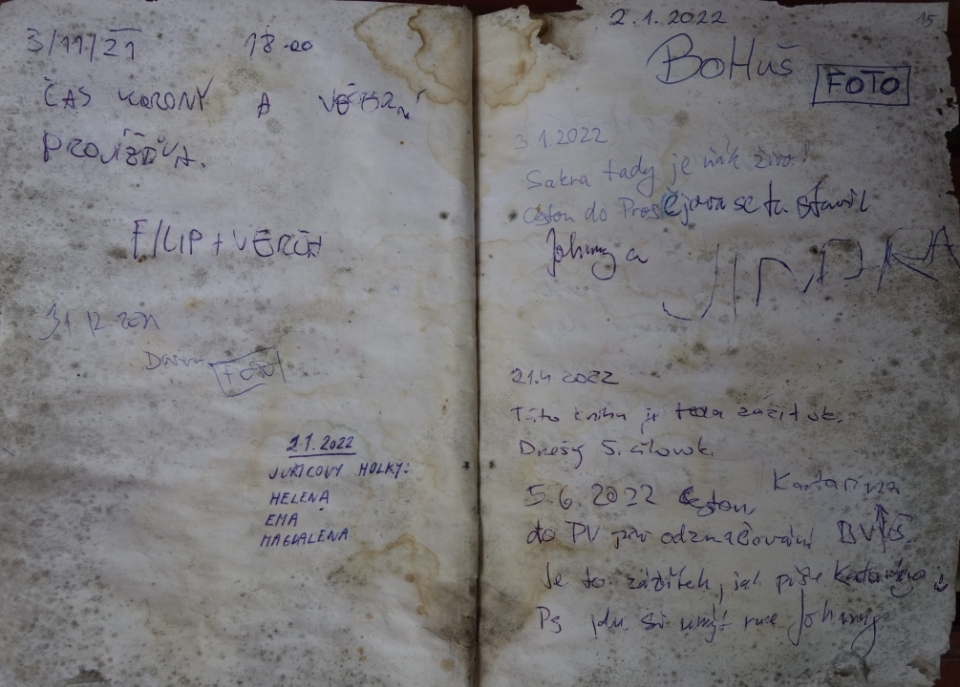 3/11/21 18.00
ČAS KORONY A
FILIP + VERČA
31 12 2021
FOTO
2.1.2022
JURICOVY HOLKY:
HELENA
EMA
MAGDALENA
15
2.1.2022
BOHUŠ
FOTO
3 1.2022
Sakra tady je ňák živo!
Cestou do Prostějova se tu stavil
Johnny a JINDRA
21.4 2022
Táto kniha je teda zážitok.
Dnešný 5. človok.
Katarína
5.6.2022 Cestou
do PV při odznačování BVTŠ.
Je to zážitek, jak píše Katarína
Ps jdu si umýt ruce Johnny